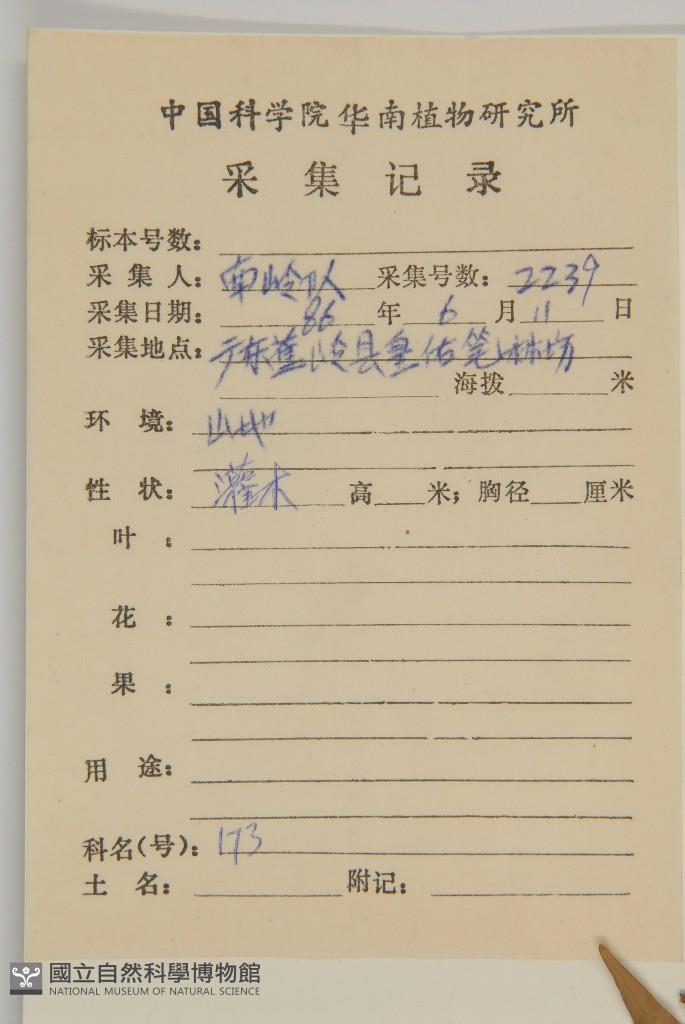 中国科学院华南植物研究所
采集记录
标本号数：
采集人：南岭队 采集号数：2239
采集日期：86年6月11日
采集地点：广东蕉岭县皇佑笔林场
海拨 米
环境：山地
性状：灌木 高 米；胸径 厘米
叶：
花：
果：
用途：
科名(号)：173
土名： 附记：
國立自然科學博物館
NATIONAL MUSEUM OF NATURAL SCIENCE